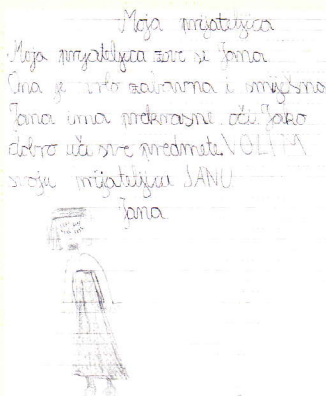 Moja prijateljica
Moja prijateljica zove se Jana
Ona je vrlo zabavna i smiješna
Jana ima prekrasne oči. Jako
dobro uči sve predmete. VOLIM
svoju prijateljicu JANU
Jana